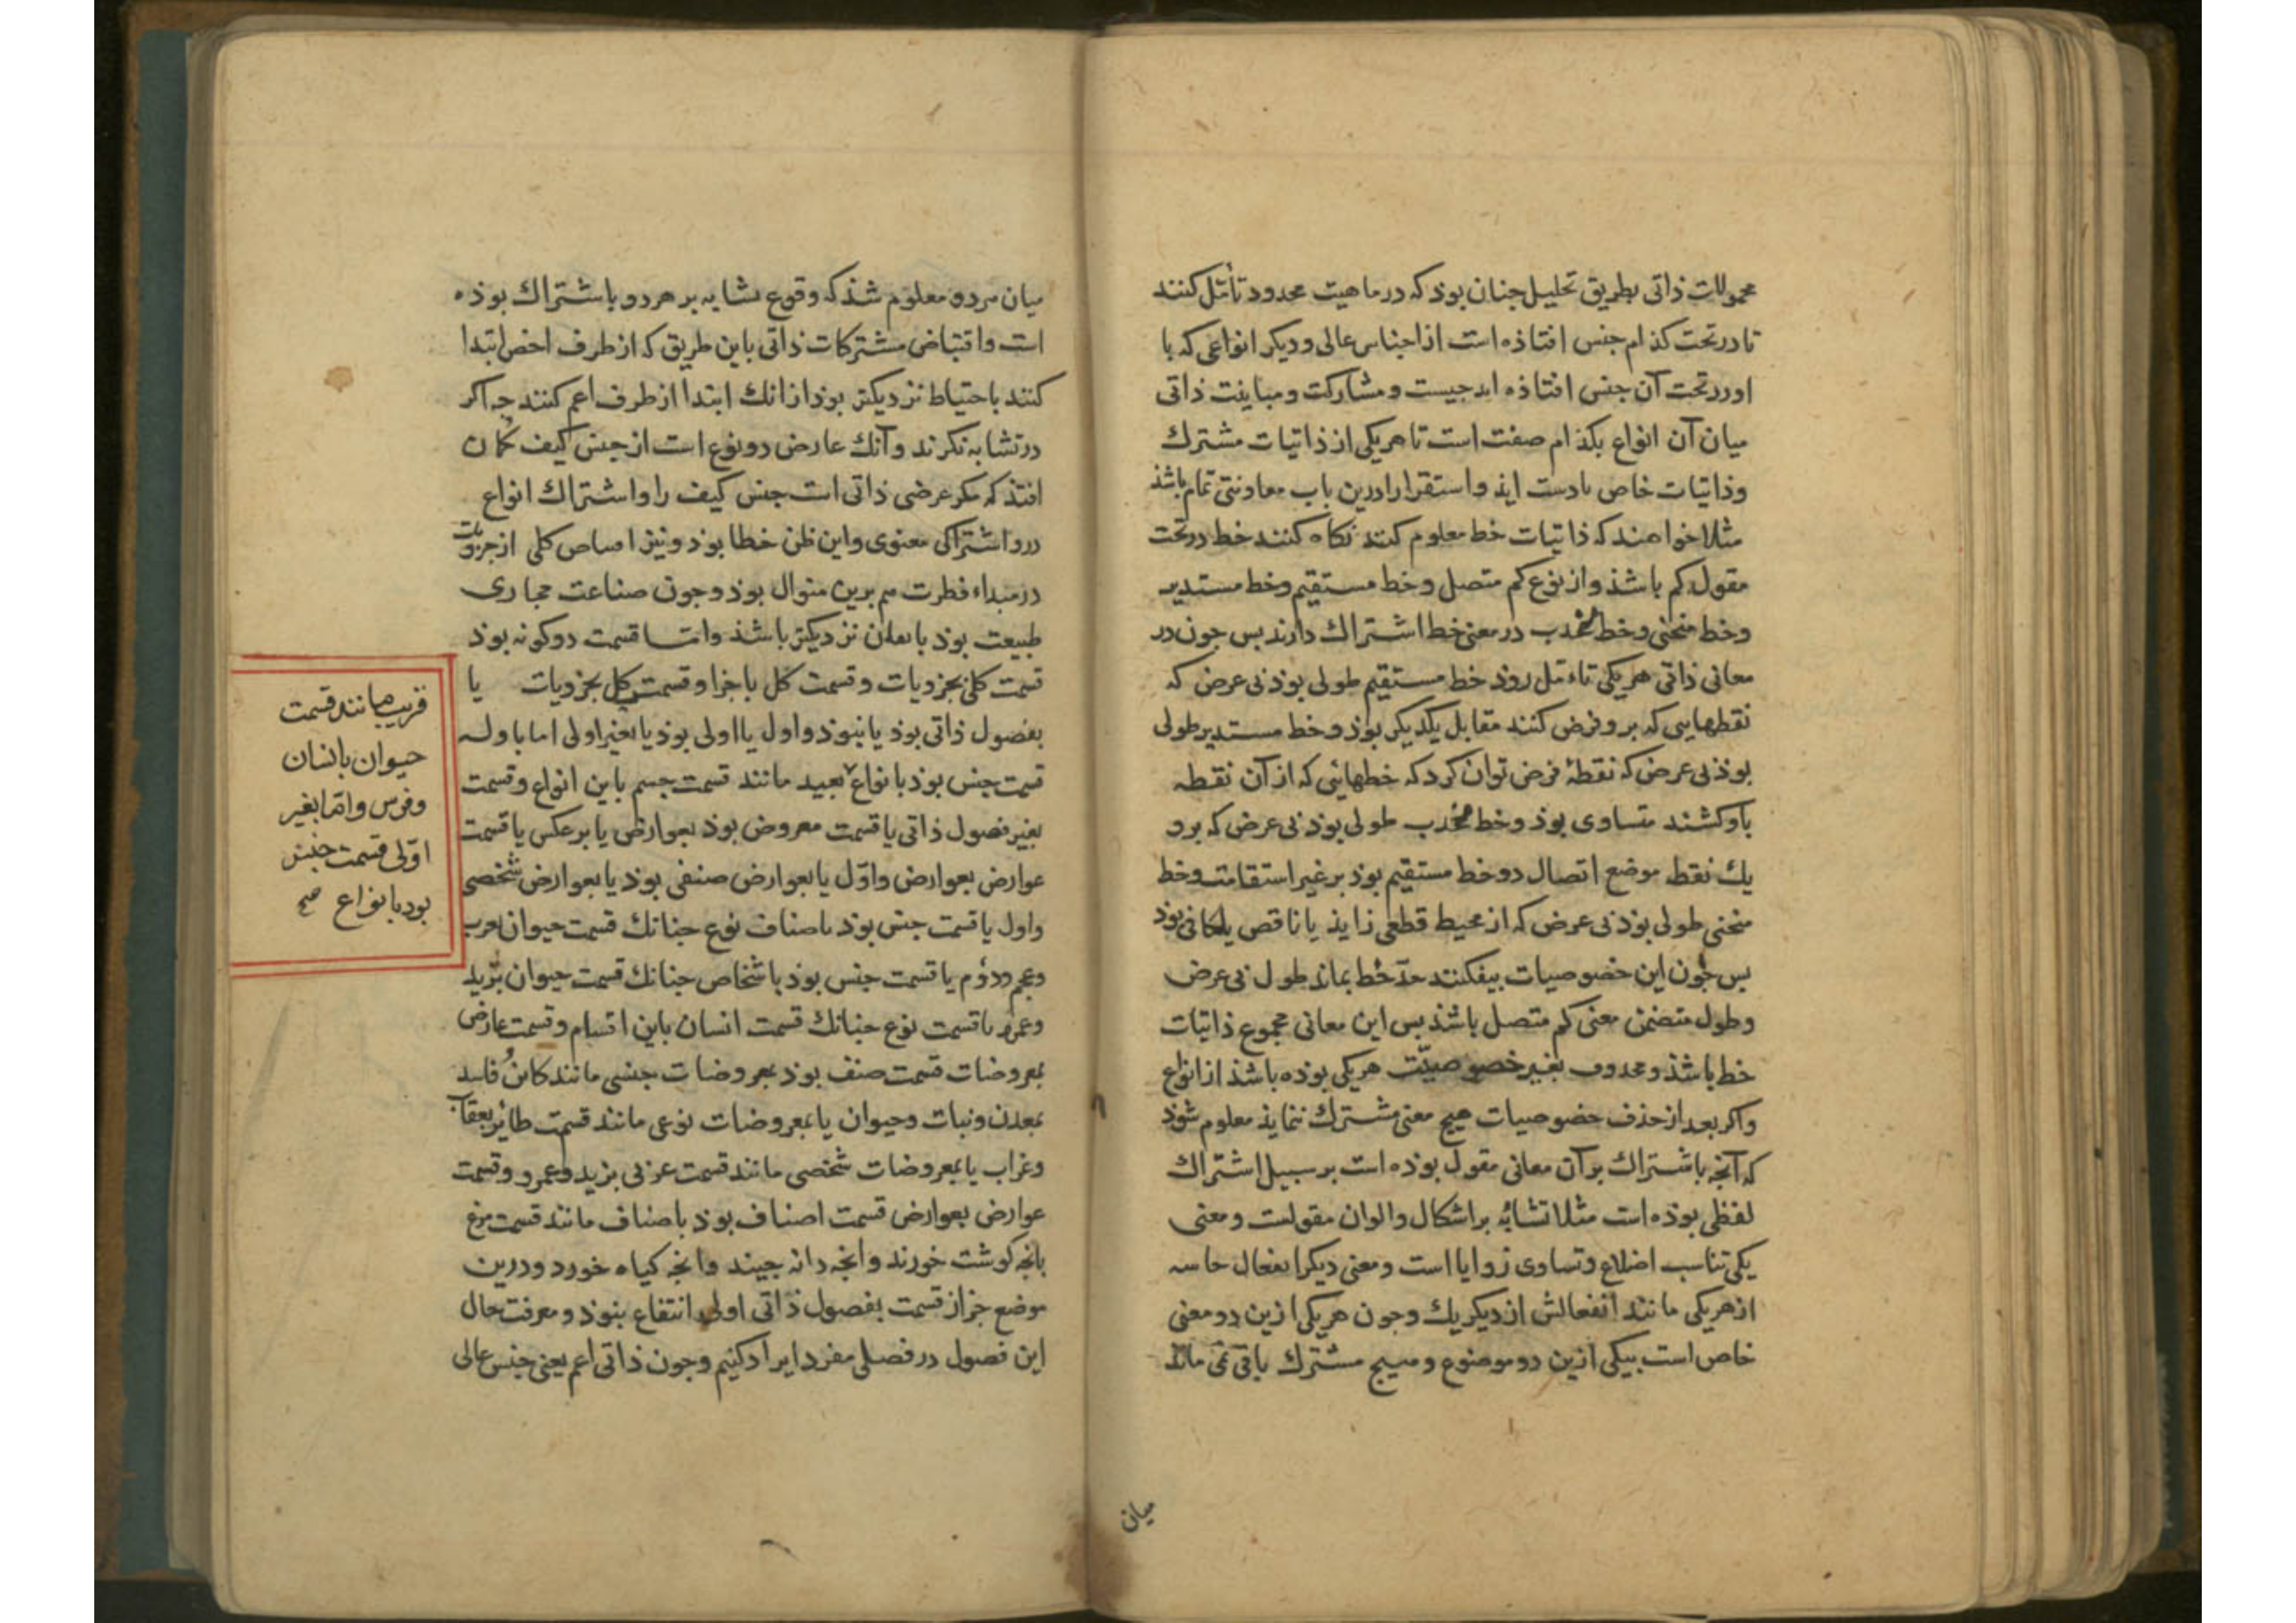 محمولات ذاتی بطریق تحلیل جنان بوذ که در ماهیت محدود تأمل کنند
تا در تحت کذام جنس افتاذه است از اجناس عالی و دیکر انواعی که با
او در تحت آن جنس افتاذه اند جیست و مشارکت و مباینت ذاتی
میان آن انواع بکذام صفت است تا هر یکی از ذاتیات مشترک
و ذاتیات خاص بادست ایذ و استقرا را درین باب معاونتی تمام باشذ
مثلا خواهند که ذاتیات خط معلوم کنند نکاه کنند خط در تحت
مقول کم باشذ و از نوع کم متصل و خط مستقیم و خط مستدیر
و خط منحنی و خط محدب در معنی خط اشتراک دارند بس جون در
معانی ذاتی هر یکی تاءمل روذ خط مستقیم طولی بوذ بی عرض که
نقطهایی که برو فرض کنند مقابل یکدیکر بوذ و خط مستدیر طولی
بوذ بی عرض که نقطهٔ فرض توان کرد که خطهایی که از آن نقطه
باو کشند متساوی بوذ و خط محدب طولی بوذ بی عرض که برو
یک نقطه موضع اتصال دو خط مستقیم بوذ بر غیر استقامت و خط
منحنی طولی بوذ بی عرض که از محیط قطعی زاید یا ناقص یا مکافی بوذ
بس جون این خصوصیات بیفکنند حدّ خط بماند طول بی عرض
و طول متضمن معنی کم متصل باشذ بس این معانی مجموع ذاتیات
خط باشذ و محدوف بغیر خصوصیّت هر یکی بوذه باشذ از انواع
و اکر بعد از حذف خصوصیات هیج معنی مشترک ننماید معلوم شوذ
که آنجه باشتراک بر آن معانی مقول بوذه است بر سبیل اشتراک
لفظی بوذه است مثلا تشابه بر اشکال و الوان مقولست و معنی
یکی تناسب اضلاع و تساوی زوایا است و معنی دیکر انفعال حاسه
از هر یکی مانند انفعالش از دیکر یک و جون هر یکی ازین دو معنی
خاص است بیکی ازین دو موضوع و هیج مشترک باقی نمی ماند
میان
میان هر دو معلوم شذ که وقوع تشابه بر هر دو باشتراک بوذه
است و اقتناص مشترکات ذاتی باین طریق که از طرف اخص ابتدا
کنند باحتیاط نزدیکتر بوذ از انک ابتدا از طرف اعم کنند جه اکر
در تشابه نکرند و آنک عارض دو نوع است از جنس کیف کمان
افتذ که مکر عرضی ذاتی است جنس کیف را و اشتراک انواع
درو اشتراکی معنوی و این ظن خطا بوذ و نیز اقتناص کلی از جزویات
در مبداء فطرت هم برین منوال بوذ و جون صناعت مجاری
طبیعت بوذ باتقان نزدیکتر باشذ و امّا قسمت دو کونه بوذ
قسمت کلی بجزویات و قسمت کل باجزا و قسمت کل بجزویات یا
بفصول ذاتی بوذ یا نبوذ و اول یا اولی بوذ یا بغیر اولی اما باول
قسمت جنس بوذ بانواع بعید مانند قسمت جسم باین انواع و قسمت
بغیر فصول ذاتی یا قسمت معروض بوذ بعوارض یا بر عکس یا قسمت
عوارض بعوارض و اوّل یا بعوارض صنفی بوذ یا بعوارض شخصی
و اول یا قسمت جنس بوذ باصناف نوع جنانک قسمت حیوان بعرب
و عجم و دوم یا قسمت جنس بوذ باشخاص جنانک قسمت حیوان بزید
و عمرو یا قسمت نوع جنانک قسمت انسان باین اقسام و قسمت عارض
بمعروضات قسمت صنف بوذ بمعروضات جنسی مانند کاین فاسد
بمعدن و نبات و حیوان یا بمعروضات نوعی مانند قسمت طائر بعقاب
و غراب یا بمعروضات شخصی مانند قسمت عربی بزید و عمرو و قسمت
عوارض بعوارض قسمت اصناف بوذ باصناف مانند قسمت مرغ
بانجه کوشت خورند و انجه دانه جیند و انجه کیاه خورد و درین
موضع جز از قسمت بفصول ذاتی اولی انتفاع بنوذ و معرفت حال
این فصول در فصلی مفرد ایراد کنیم و جون ذاتی اعم یعنی جنس عالی
قریب مانند قسمت
حیوان بانسان
و فرس و امّا بغیر
اوّلی قسمت جنس
بود بانواع صح